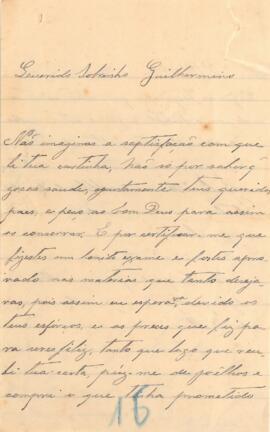 Querido Sobrinho Guilhermino
Não imaginas a septisfação com que
li tua cartinha, não só por saber q̃
gosas saude, juntamente teus queridos
paes, e peço ao bom Deus para assim
os conservar. E por certificar-me que
fizestes um bonito exame e fostes apro-
vado nas materias que tanto deseja-
vas, pois assim eu esperava, devido os
teus esforços, e as preces que fiz pa-
ra seres feliz, tanto que logo que rece-
bi tua carta, puz-me de joêlhos e
compri o que tinha promettido
16